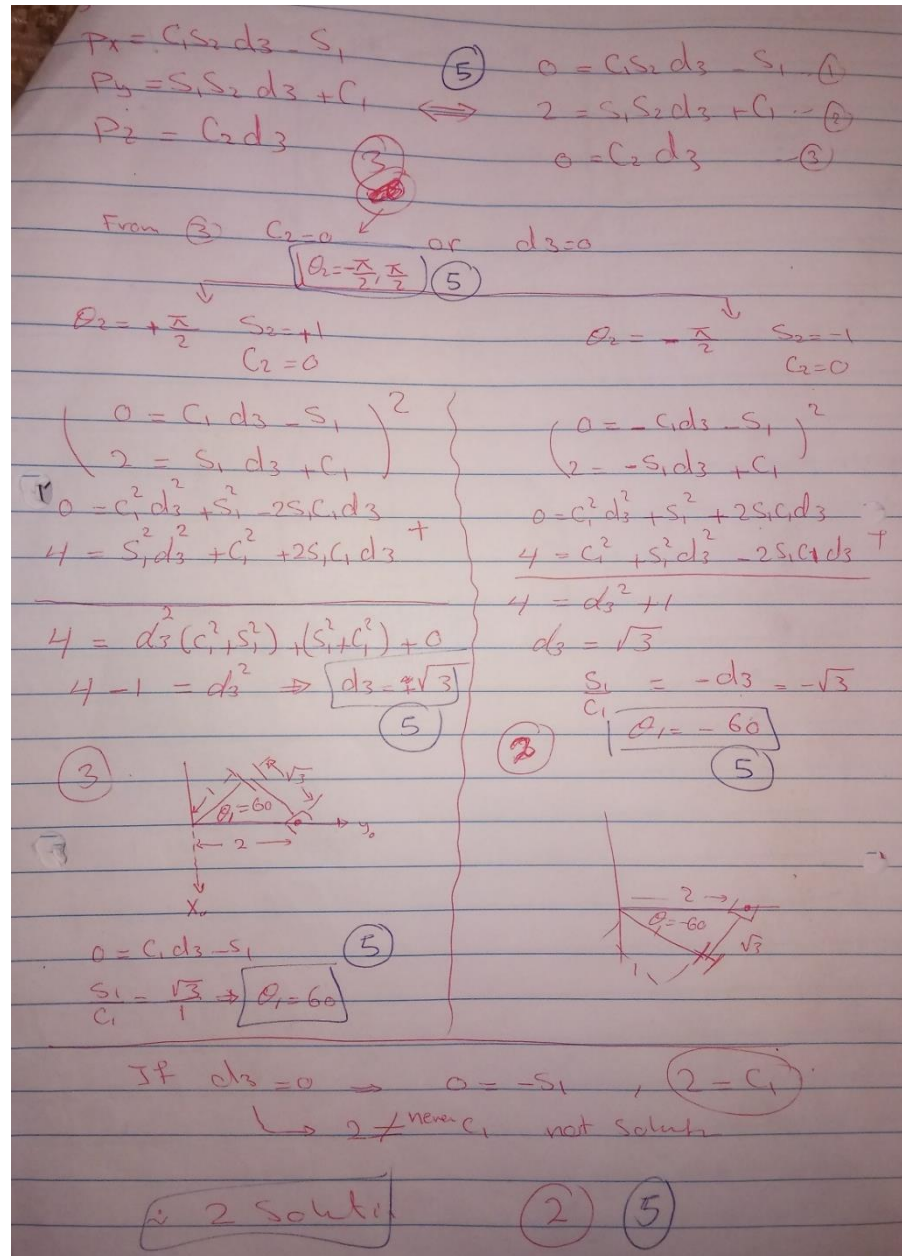 Px = C₁S₂d₃ - S₁
Py = S₁S₂d₃ + C₁
Pz = C₂d₃
③
⑤
⟺
0 = C₁S₂d₃ - S₁ ①
2 = S₁S₂d₃ + C₁ -- ②
0 = C₂d₃ -- ③
From ③ C₂=0 or d₃=0
θ₂ = -π/2, π/2 ⑤
θ₂ = +π/2 S₂=+1
C₂=0
( 0 = C₁d₃ - S₁
2 = S₁d₃ + C₁ )²
0 = C₁²d₃² + S₁² - 2S₁C₁d₃
4 = S₁²d₃² + C₁² + 2S₁C₁d₃ +
4 = d₃²(C₁²+S₁²) + (S₁²+C₁²) + 0
4 - 1 = d₃² ⇒ d₃ = ±√3
⑤
③
1
√3
θ₁=60
y₀
2
X₀
0 = C₁d₃ - S₁ ⑤
S₁/C₁ = √3/1 ⇒ θ₁=60
θ₂ = -π/2 S₂=-1
C₂=0
( 0 = -C₁d₃ - S₁
2 = -S₁d₃ + C₁ )²
0 = C₁²d₃² + S₁² + 2S₁C₁d₃
4 = C₁² + S₁²d₃² - 2S₁C₁d₃ +
4 = d₃² + 1
d₃ = √3
S₁/C₁ = -d₃ = -√3
θ₁ = -60
②
⑤
2
θ₁=-60
√3
1
If d₃=0 ⇒ 0 = -S₁ , 2 = C₁
↳ 2 ≠ never C₁ not Solut
∴ 2 Soluti ② ⑤